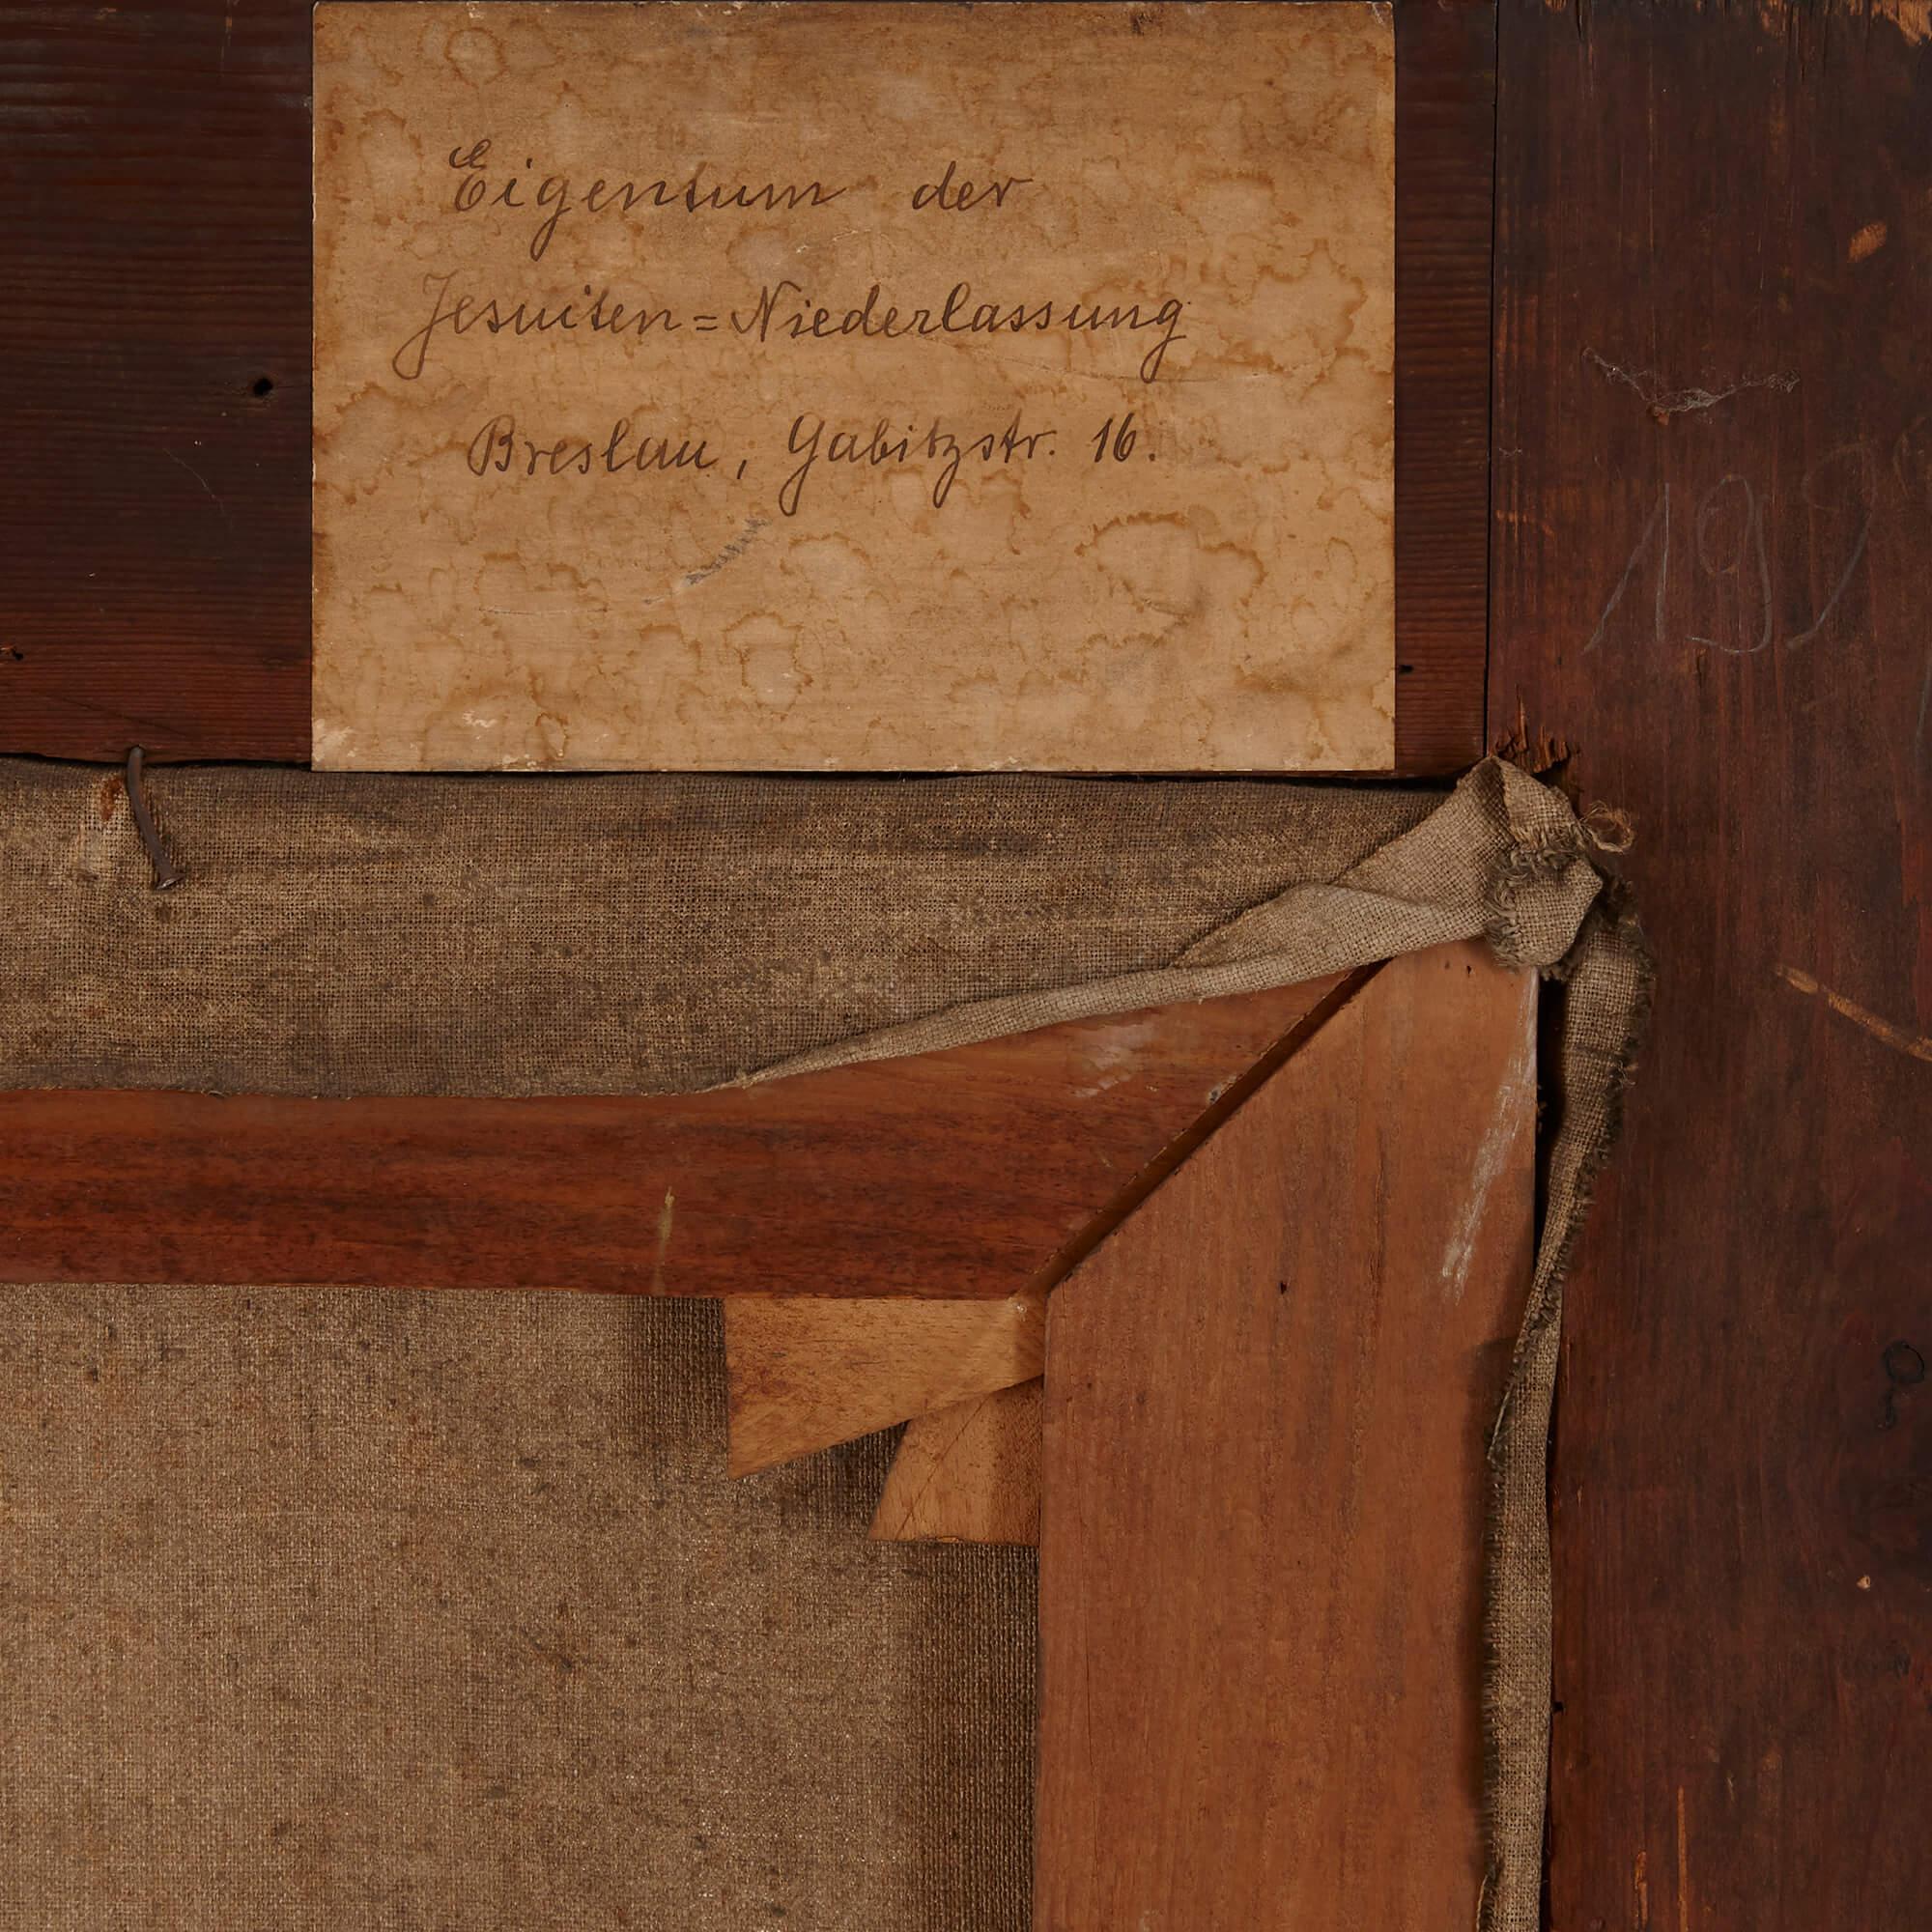 Eigentum der
Jesuiten=Niederlassung
Breslau, Gabitzstr. 16.